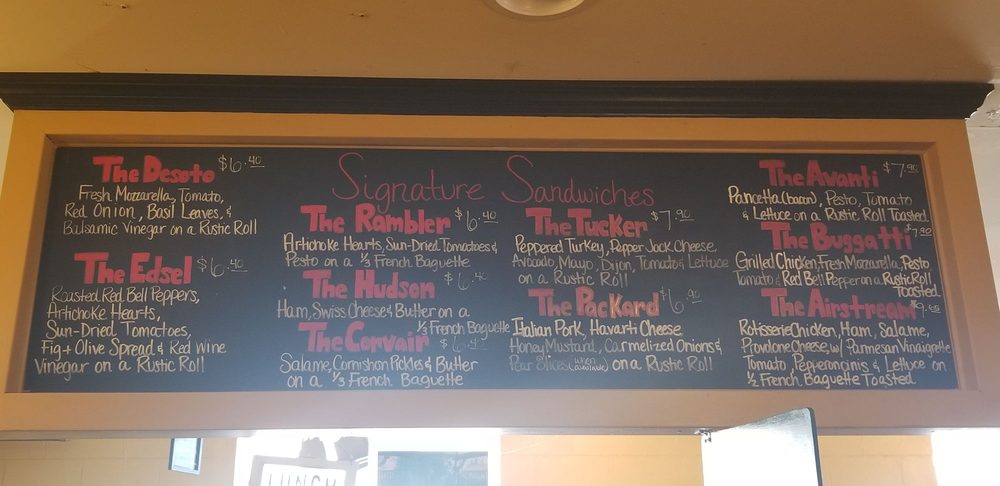 Signature Sandwiches
The Desoto $6.40
Fresh Mozzarella, Tomato,
Red Onion, Basil Leaves, &
Balsamic Vinegar on a Rustic Roll
The Edsel $6.40
Roasted Red Bell Peppers,
Artichoke Hearts,
Sun-Dried Tomatoes,
Fig + Olive Spread & Red Wine
Vinegar on a Rustic Roll
The Rambler $6.40
Artichoke Hearts, Sun-Dried Tomatoes &
Pesto on a 1/3 French Baguette
The Hudson $6.40
Ham, Swiss Cheese & Butter on a
1/3 French Baguette
The Corvair
Salame, Cornishon Pickles & Butter
on a 1/3 French Baguette
The Tucker $7.90
Peppered Turkey, Pepper Jack Cheese,
Avocado, Mayo, Dijon, Tomato & Lettuce
on a Rustic Roll
The Packard $6.90
Italian Pork, Havarti Cheese
Honey Mustard, Carmelized Onions &
Pear Slices (when available) on a Rustic Roll
The Avanti $7.90
Pancetta (bacon), Pesto, Tomato
& Lettuce on a Rustic Roll Toasted
The Buggatti $7.90
Grilled Chicken, Fresh Mozzarella, Pesto
Tomato & Red Bell Pepper on a Rustic Roll
Toasted
The Airstream
Rotisserie Chicken, Ham, Salame,
Provolone Cheese, w/ Parmesan Vinaigrette
Tomato, Pepperoncinis & Lettuce on
1/2 French Baguette Toasted
LUNCH